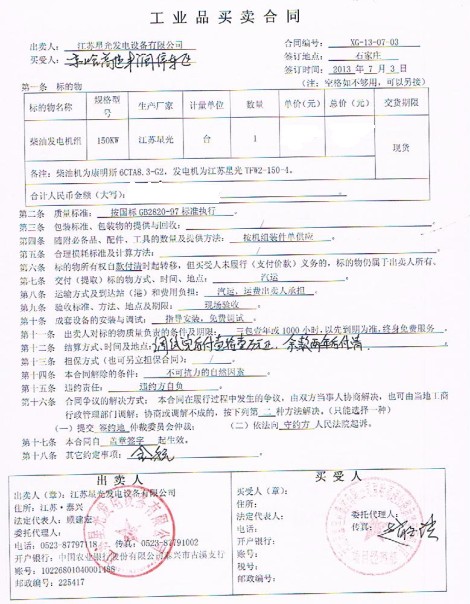 工业品买卖合同
出卖人：江苏星光发电设备有限公司
合同编号：XG-13-07-03
买受人：
签订地点：石家庄
签订时间：2013年7月3日
第一条 标的物
（注：空格如不够用，可以另接）
标的物名称 规格型号 生产厂家 计量单位 数量 单价(元) 总价(元) 交货期限
柴油发电机组 150KW 江苏星光 台 1 现货
备注：柴油机为康明斯6CTA8.3-G2，发电机为江苏星光TFW2-150-4。
合计人民币金额(大写)：
第二条 质量标准：按国标GB2820-97标准执行。
第三条 包装标准、包装物的提供与回收：/
第四条 随附必备品、配件、工具的数量及提供方法：按机组装件单供应
第五条 合理损耗标准及计算方法：/
第六条 标的物所有权自款付清时起转移，但买受人未履行（支付价款）义务的，标的物仍属于出卖人所有。
第七条 交付（提取）标的物方式、时间、地点：汽运
第八条 运输方式及到达站（港）和费用负担：汽运、运费出卖人承担
第九条 验收标准、方法、地点及期限：现场验收
第十条 成套设备的安装与调试：指导安装，免费调试
第十一条 出卖人对标的物质量负责的条件及期限：三包壹年或1000小时，以先到期为准，终身免费服务
第十二条 结算方式、时间及地点：
第十三条 担保方式（也可另立担保合同）：/
第十四条 本合同解除的条件：不可抗力的自然因素
第十五条 违约责任：违约方自负
第十六条 合同争议的解决方式：本合同在履行过程中发生的争议，由双方当事人协商解决，也可由当地工商
行政管理部门调解；协商或调解不成的，按下列第二种方法解决。（只能选择一种）
（一）提交签约地仲裁委员会仲裁；（二）依法向守约方人民法院起诉。
第十七条 本合同自盖章签字起生效。
第十八条 其它约定事项：
出卖人
出卖人（章）：江苏星光发电设备有限公司
住所：江苏·泰兴
法定代表人：顾建宏
委托代理人：
电话：0523-87797118 传真：0523-87791002
开户银行：中国农业银行股份有限公司泰兴市古溪支行
账号：10226801040001488
邮政编号：225417
买受人
买受人（章）：
住所：
法定代表人：
委托代理人：
电话：
传真：
开户银行：
账号：
税号：
邮政编号：